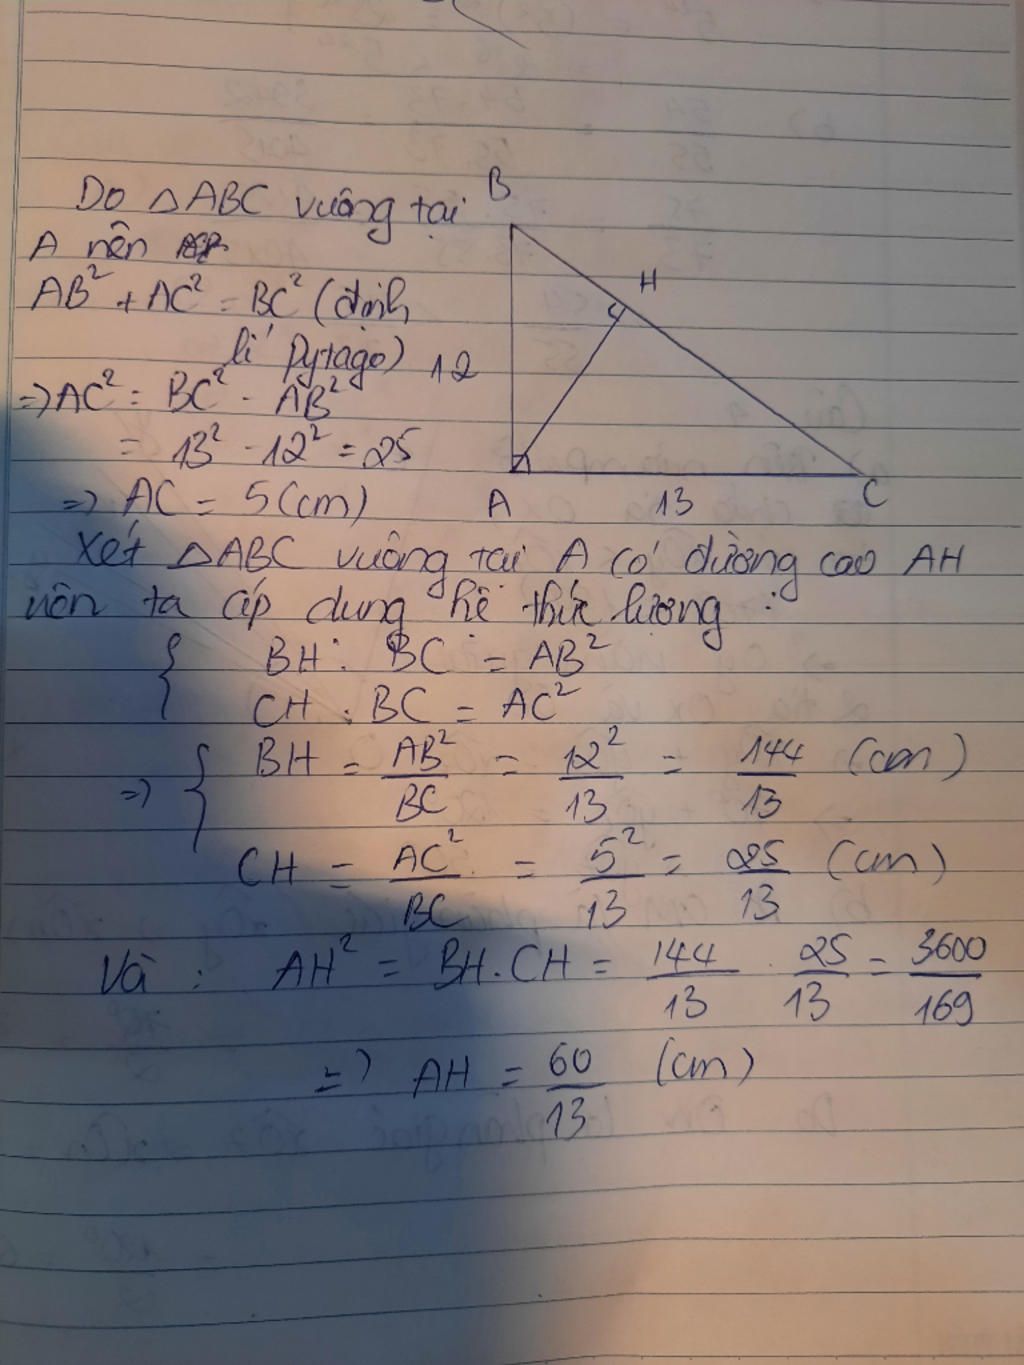 Do △ABC vuông tại
A nên
AB² + AC² = BC² (định
lí Pytago)
⇒ AC² = BC² - AB²
= 13² - 12² = 25
⇒ AC = 5 (cm)
B
H
12
A
13
C
Xét △ABC vuông tại A có đường cao AH
nên ta áp dụng hệ thức lượng :
{ BH . BC = AB²
CH . BC = AC²
⇒ { BH = AB²/BC = 12²/13 = 144/13 (cm)
CH = AC²/BC = 5²/13 = 25/13 (cm)
Và : AH² = BH.CH = 144/13 . 25/13 = 3600/169
⇒ AH = 60/13 (cm)